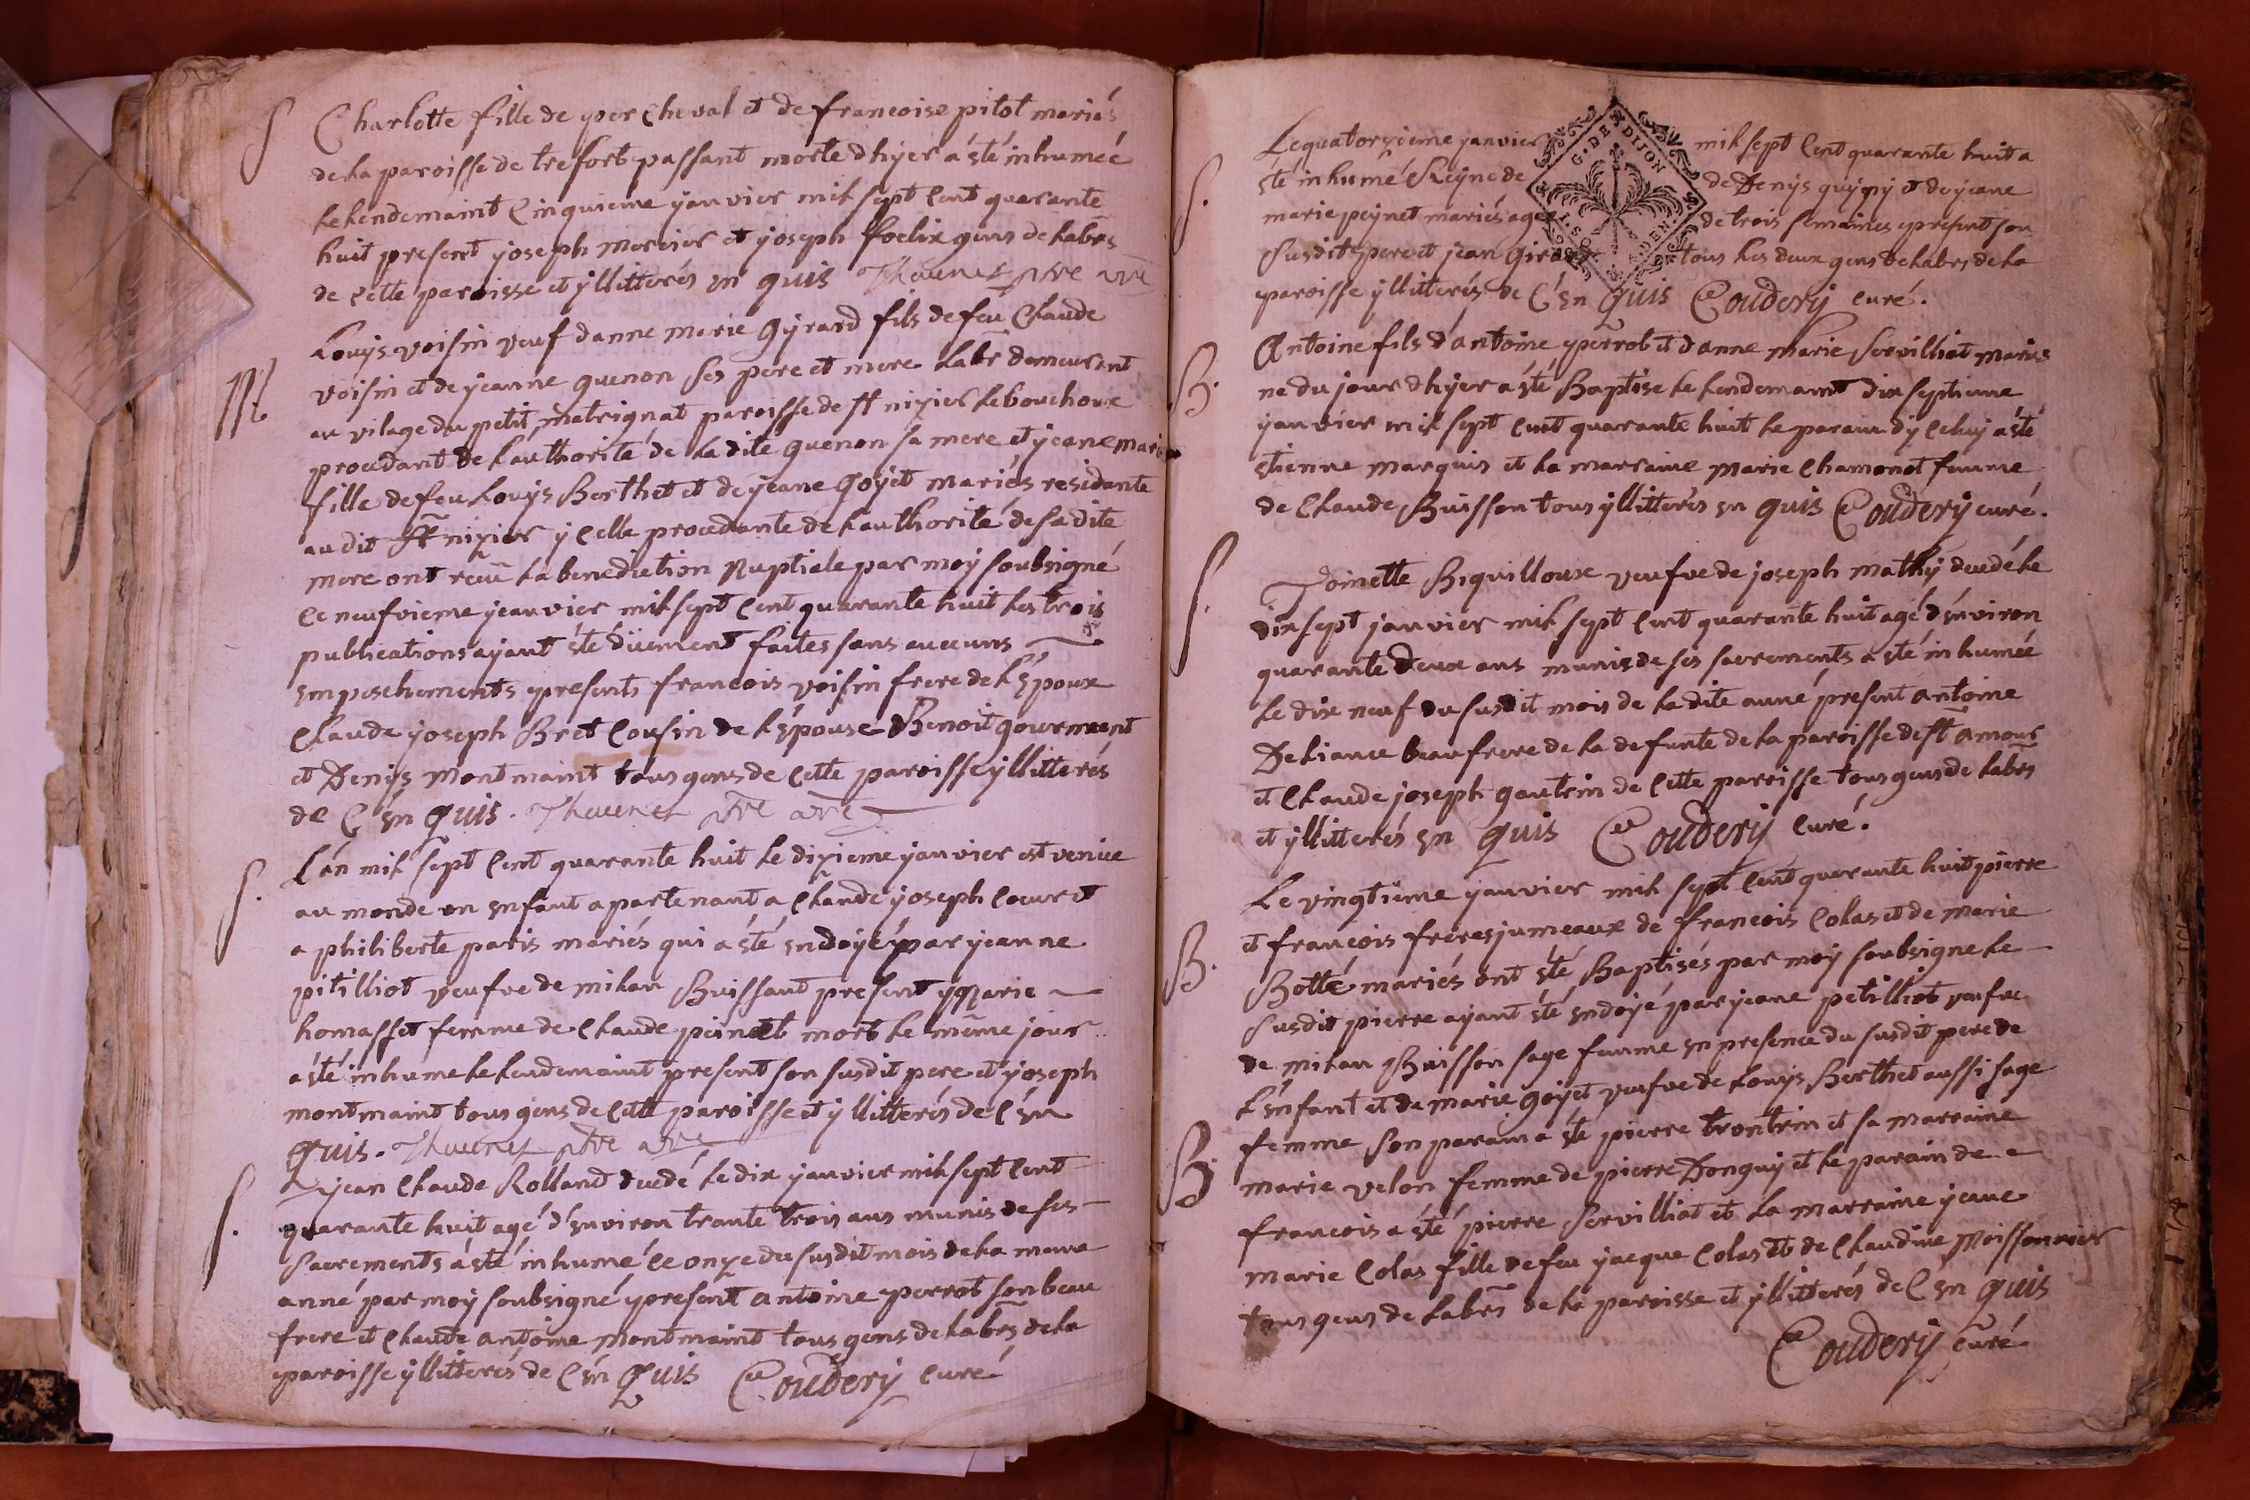 S
Charlotte fille de pier Cheval et de francoise pitot mariés
de la paroisse de trefort passant morte dhyer a été inhumée
le lendemaint Cinquieme janvier mil sept Cent quarante
huit present joseph mercier et joseph foelix gens de labrs
de Cette paroisse et yllitterés en quis Thevenet ptre vre
M
Louys voisin veuf danne marie Gyrard fils de feu Claude
voisin et de jeanne quenon ses pere et mere labr demeurent
au vilage du petit matrignat paroisse de st nizier le bouchoux
procedant de l'authorité de la dite quenon sa mere et jeane marie
fille de feu Louys Berthet et de jeane Goyet mariés residante
au dit st nizier ycelle procedante de l'authorité de sa dite
mere ont reçu la benediction Nuptiale par moy soubsigné
le neufvieme jeanvier mil sept Cent quarante huit les trois
publications ayant été düement faites sans aucuns
empeschements presents francois voisin frere de l'Epoux
Claude joseph Bret Cousin de l'épouse Benoit gourment
et Denys montmaint tous gens de Cette paroisse yllitterés
de C en quis. Thevenet ptre vre
S.
L'an mil sept Cent quarante huit le dizieme janvier est venüe
au monde un enfant apartenant a Claude joseph Coeur et
a philiberte paris mariés qui a été endoyé par jeanne
pitilliot veufve de milan Buissant present Marie
homasset femme de Claude peinet mort le même jour
a été inhume le lendemaint present son susdit pere et joseph
montmaint tous gens de Cette paroisse et yllitterés de C en
quis. Thevenet ptre vre
S.
jean Claude Rolland decedé le dix janvier mil sept Cent
quarante huit agé d'environ trante trois ans munis de ses
sacrements a été inhumé le onze du susdit mois de la meme
anné par moy soubsigné present antoine perrot son beau
frere et Claude antoine montmaint tous gens de labrs de la
paroisse yllitterés de C en quis Coudery Curé
G. DE DIJON
S.
Le quatorzieme janvier mil sept Cent quarante huit a
été inhumé Reyne de de Denys guypy et de jeane
marie peynet mariés agee de trois semaines present son
susdit pere et jean Girard tous les deux gens de labrs de la
paroisse yllitterés de C en quis Coudery Curé.
B.
Antoine fils d'antoine perrot et d'anne marie servilliat mariés
ne du jour dhyer a été Baptise le lendemaint dix septieme
janvier mil sept Cent quarante huit le parain dyceluy a été
etienne marquis et la marraine marie Chamonot femme
de Claude Buisson tous yllitterés en quis Coudery Curé.
S.
Toinette Biquilloux veufve de joseph mathy decedé le
dix sept janvier mil sept Cent quarante huit agé d'environ
quarante deux ans munis de ses sacrements a été inhumée
le dix neuf du susdit mois de la dite anné present antoine
Deliance beau frere de la defunte de la paroisse de st amour
et Claude joseph gautrin de Cette paroisse tous gens de labrs
et yllitterés en quis Coudery Curé.
B.
Le vingtieme janvier mil sept Cent quarante huit pierre
et françois freres jumeaux de francois Colas et de marie
Botté mariés ont été Baptisés par moy soubsigne le
susdit pierre ayant été endoyé par jeane petilliot veufve
de milan Buisson sage femme en presence du susdit pere de
L'enfant et de marie goyet veufve de Louys Berthet aussi sage
B.
femme son parain a été pierre trontrin et sa marraine
marie velon femme de pierre Donguy et le parain de
francois a été pierre servilliat et la marraine jeane
marie Colas fille de feu jacque Colas et de Claudine moissonnier
tous gens de labrs de la paroisse et yllitterés de C en quis
Coudery Curé